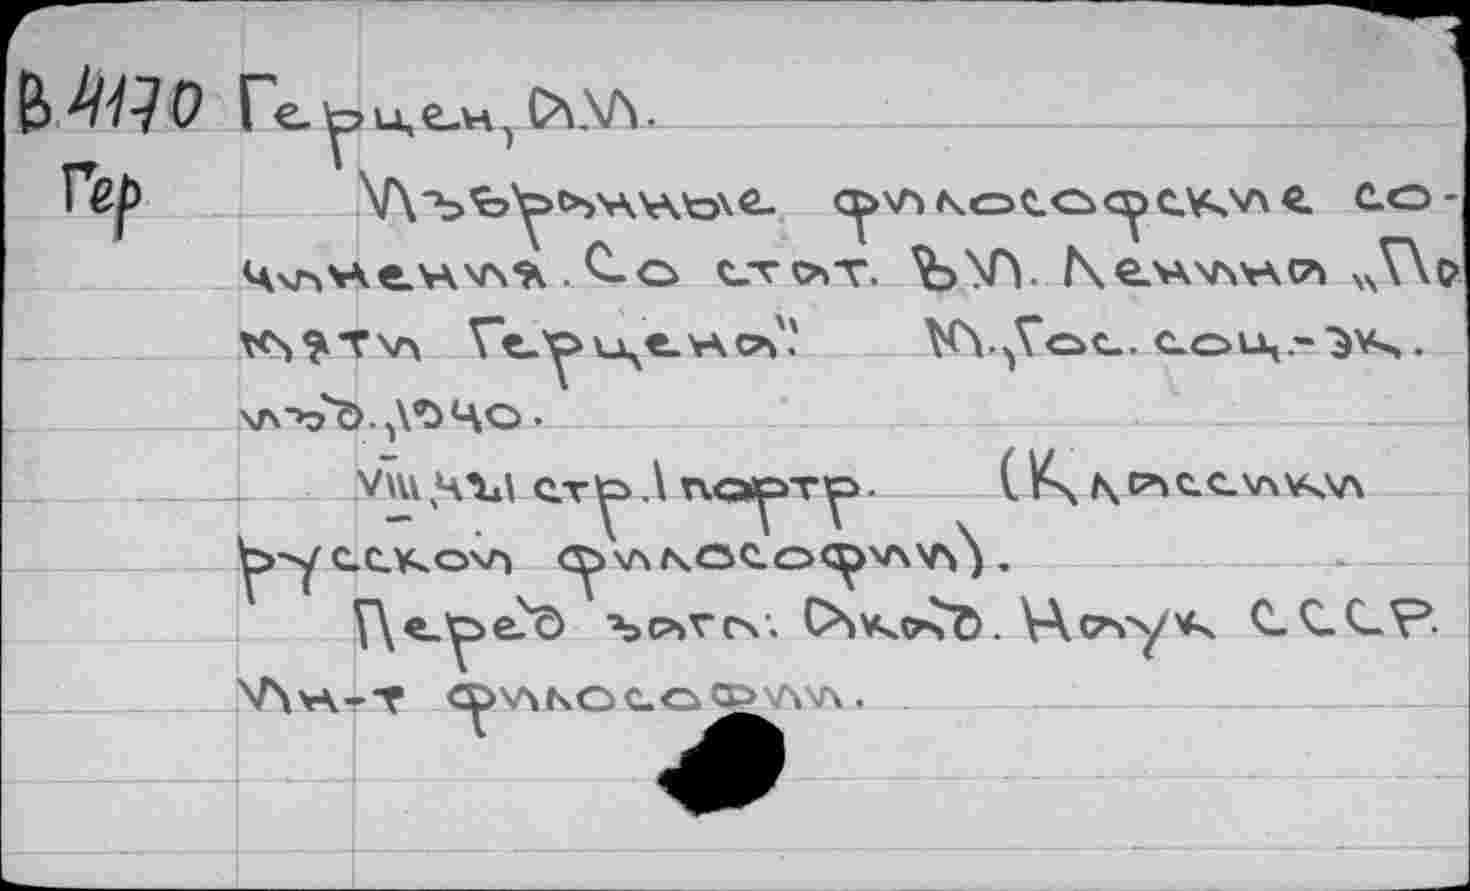 В4170 Герцен, А.И.
Гер Избранные философские со-
чинения. Со стат. В.И. Ленина „Па
мяти Герцена". М., Гос. соц.-эк.
изд., 1940.
VIII, стр. 1 портр. (Классики
русской философии).
Перед загл: Акад. Наук СССР.
Ин-т философии.